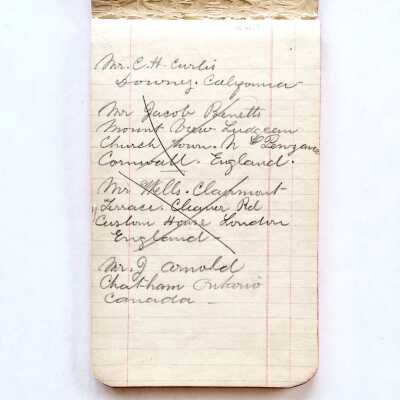 Mr. C. H. Curtis
Downey. California
Mr Jacob Renetts
Mount View Ludgean
Church Town. N
Cornwall. England.
Mr Mells. Claremont
Terrace. Rd
Custom House London
England -
Mr. J Arnold
Chatham Ontario
Canada -